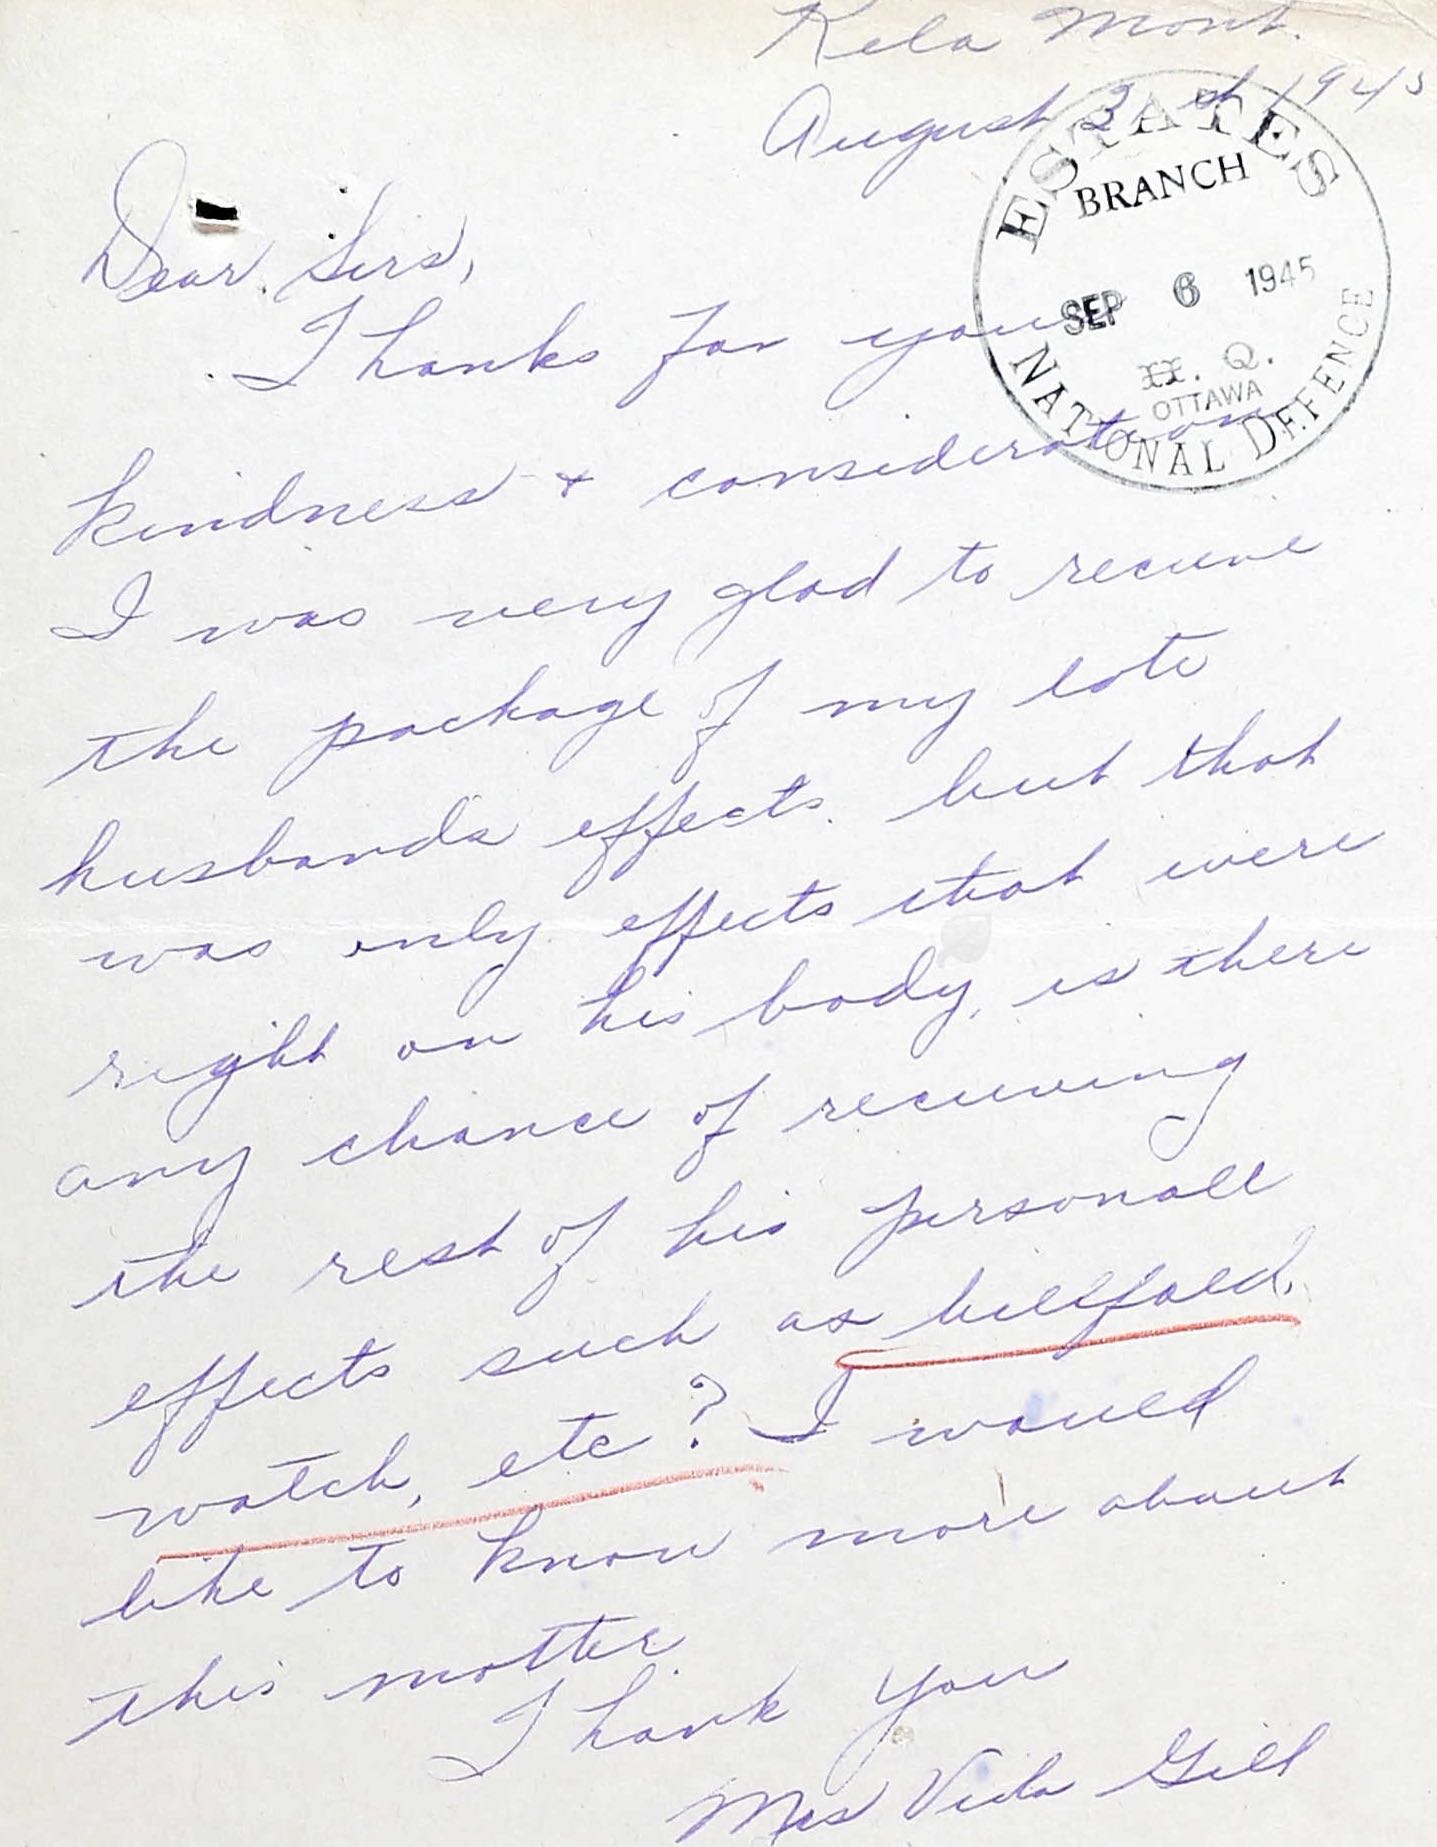 Kila Mont.
August 1945
ESTATES
BRANCH
SEP 6 1945
H. Q.
OTTAWA
NATIONAL DEFENCE
Dear Sirs,
Thanks for your
kindness + consideration
I was very glad to recieve
the package of my late
husbands effects. but that
was only effects that were
right on his body, is there
any chance of recieving
the rest of his personall
effects such as billfold,
watch, etc? I would
like to know more about
this matter.
Thank You
Mrs Vida Gill